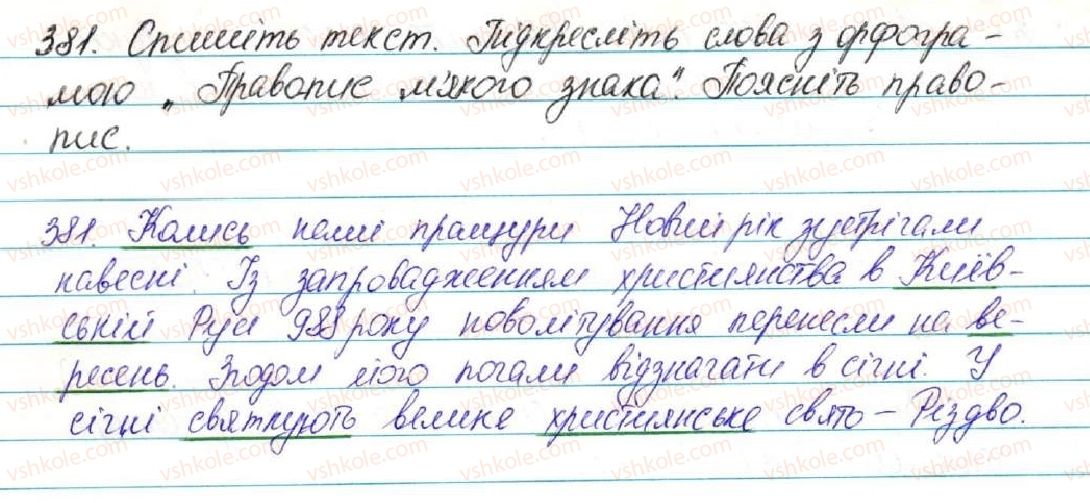 381. Спишіть текст. Підкресліть слова з орфогра-
мою „Правопис м'якого знака". Поясніть право-
пис.
381. Колись наші пращури Новий рік зустрічали
навесні. Із запровадженням християнства в Київ-
ській Русі 988 року новолітування перенесли на ве-
ресень. Згодом його почали відзначати в січні. У
січні святкують велике християнське свято – Різдво.